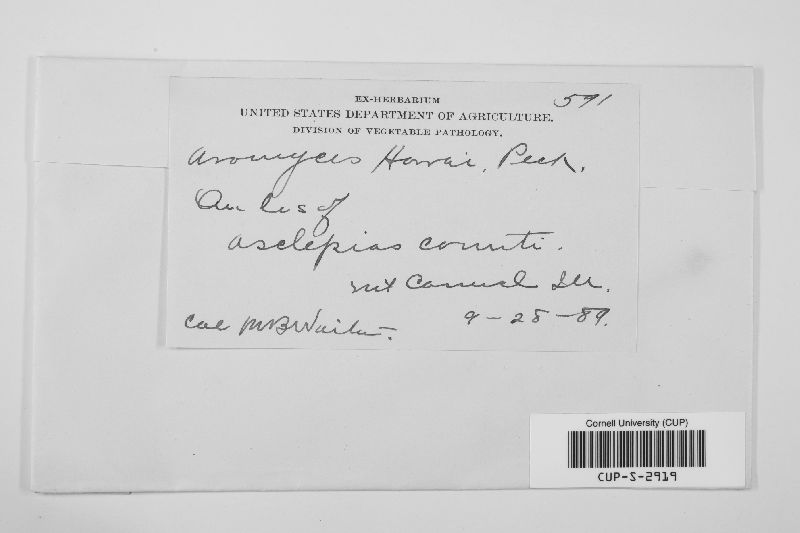 EX-HERBARIUM 591
UNITED STATES DEPARTMENT OF AGRICULTURE.
DIVISION OF VEGETABLE PATHOLOGY.
Uromyces Howei, Peck.
On lvs of
Asclepias cornuti.
Mt Carmel Ill.
Col M B Waite. 9-28-89.
Cornell University (CUP)
CUP-S-2919